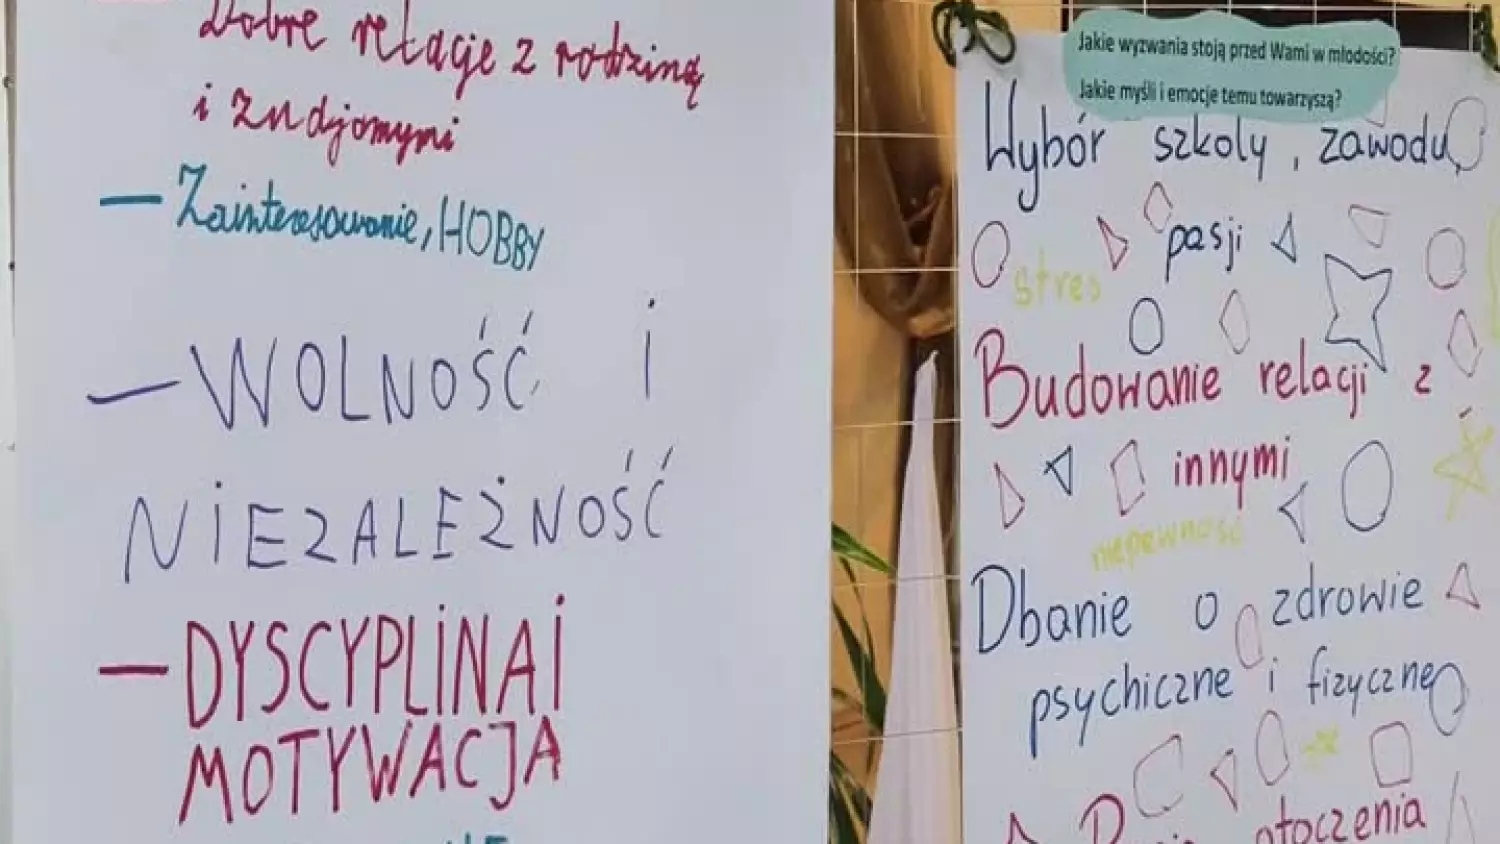 Dobre relacje z rodziną
i znajomymi
— Zainteresowanie, HOBBY
— WOLNOŚĆ i
NIEZALEŻNOŚĆ
— DYSCYPLINA i
MOTYWACJA
Jakie wyzwania stoją przed Wami w młodości?
Jakie myśli i emocje temu towarzyszą?
Wybór szkoły, zawodu,
pasji
stres
Budowanie relacji z
innymi
niepewność
Dbanie o zdrowie
psychiczne i fizyczne
otoczenia